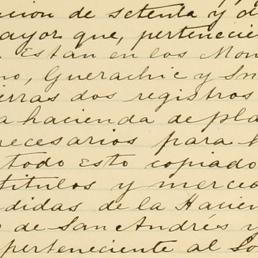 cion de setenta y d
ayor que, pertenecie
Están en los Mon
no, Guerachic y Sn
ierras dos registros
a hacienda de pla
necesarios para l
todo Esto copiado
titulos y merced
didas de la Hacien
de San Andrés y
perteneciente al Do